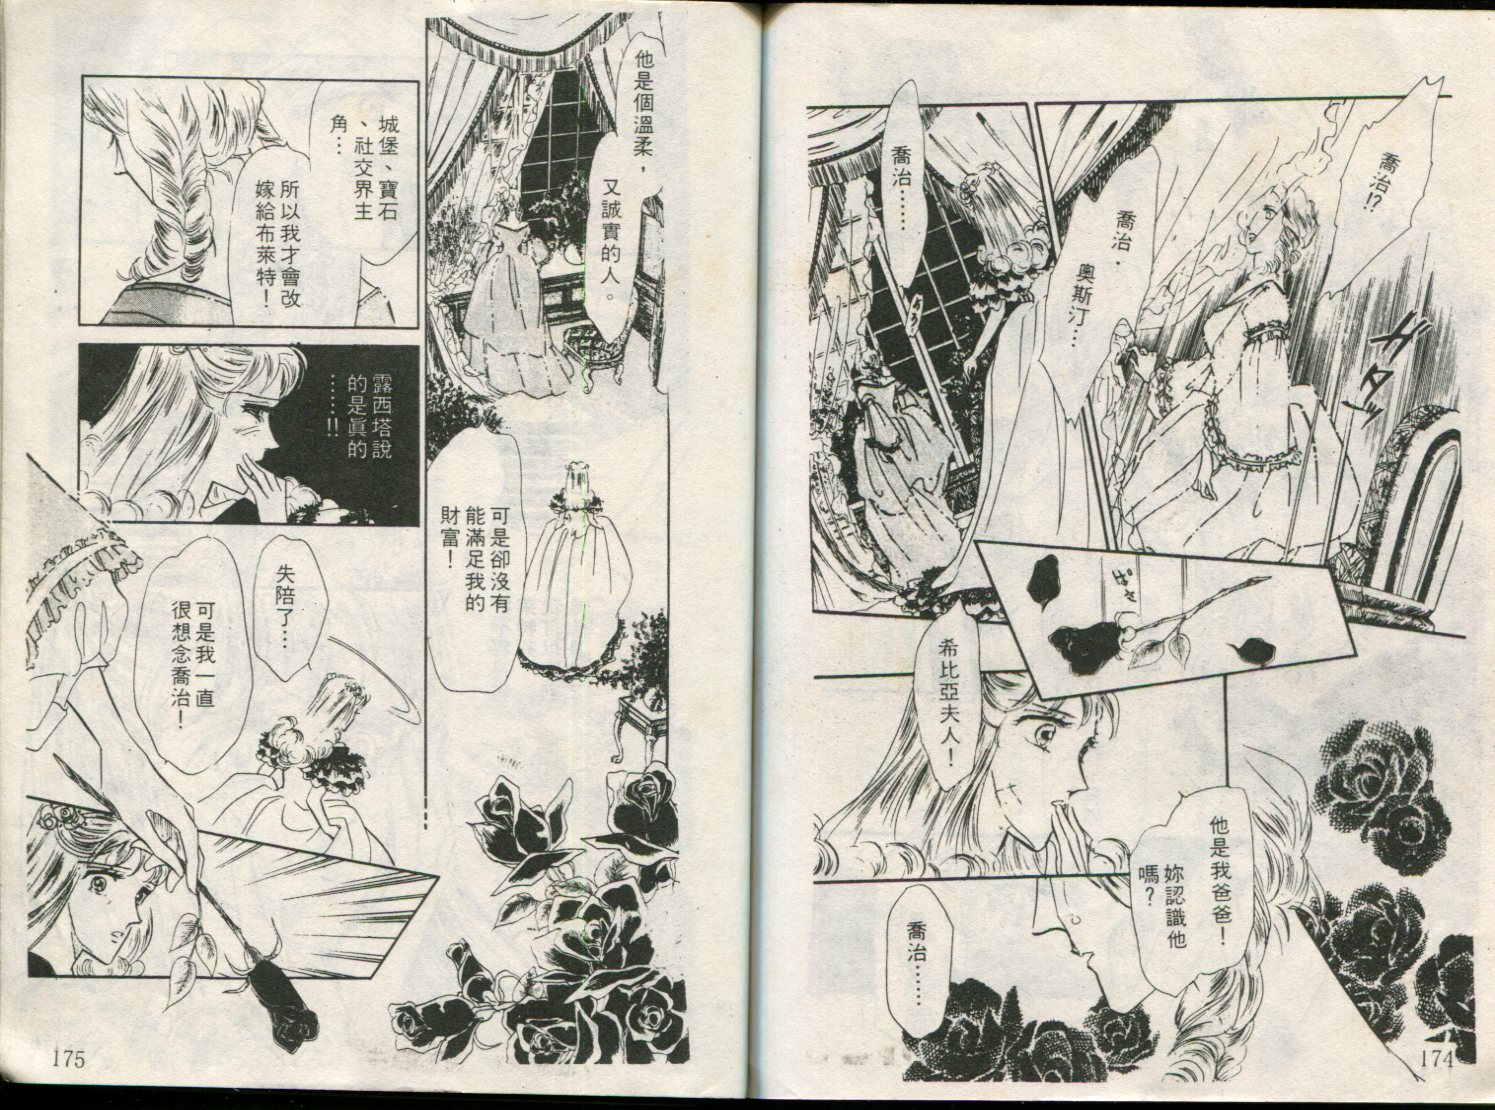 喬治!?
ガタッ
喬治．
奧斯汀…
喬治……
ぱさ
希比亞夫人！
他是我爸爸！
妳認識他
嗎？
喬治……
174
他是個溫柔，
又誠實的人。
可是卻沒有
能滿足我的
財富！
城堡、寶石
、社交界主
角…
所以我才會改
嫁給布萊特！
露西塔說
的是眞的
……!!
失陪了…
可是我一直
很想念喬治！
175